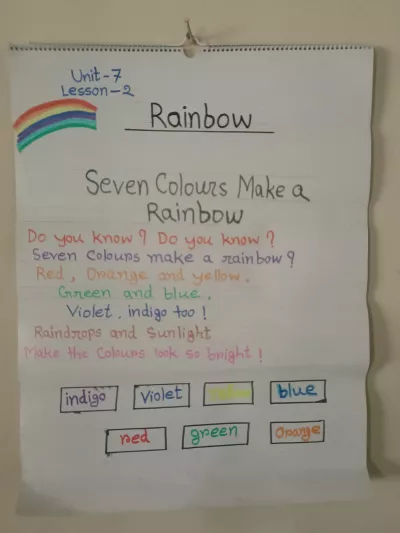 Unit-7
Lesson-2
Rainbow
Seven Colours Make a
Rainbow
Do you know? Do you know?
Seven Colours make a rainbow?
Red, Orange and yellow.
Green and blue.
Violet. indigo too!
Raindrops and Sunlight
Make the Colours look so bright!
indigo Violet yellow blue
red green Orange